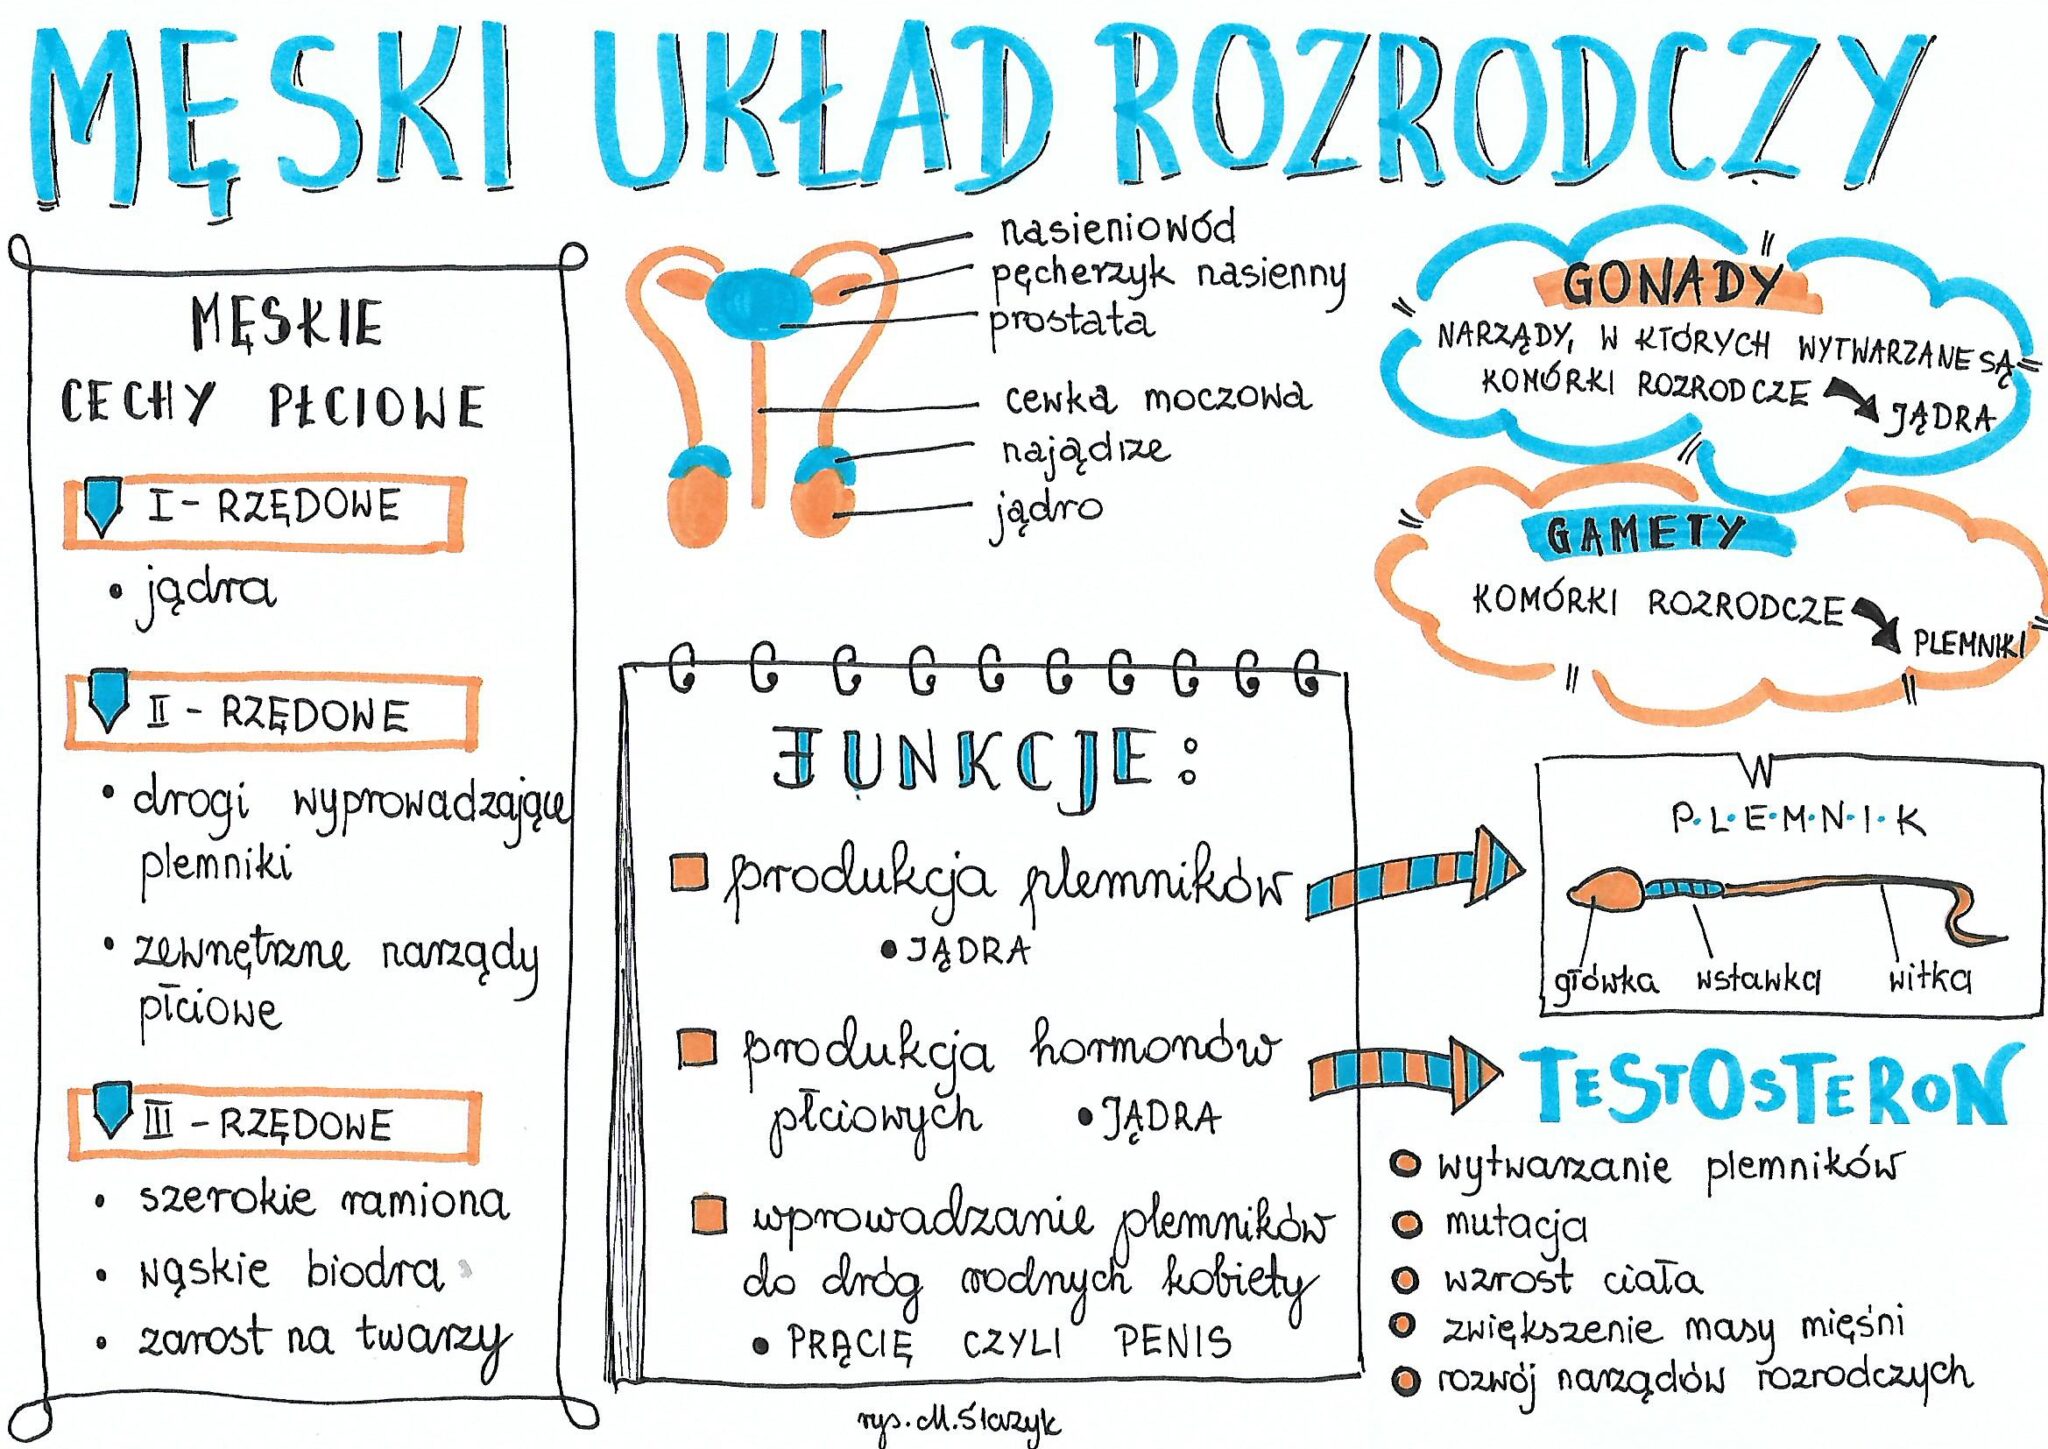 MĘSKI UKŁAD ROZRODCZY
MĘSKIE
CECHY PŁCIOWE
I - RZĘDOWE
• jądra
II - RZĘDOWE
• drogi wyprowadzające
plemniki
• zewnętrzne narządy
płciowe
III - RZĘDOWE
• szerokie ramiona
• wąskie biodra
• zarost na twarzy
nasieniowód
pęcherzyk nasienny
prostata
cewka moczowa
najądrze
jądro
GONADY
NARZĄDY, W KTÓRYCH WYTWARZANE SĄ
KOMÓRKI ROZRODCZE
JĄDRA
GAMETY
KOMÓRKI ROZRODCZE
PLEMNIKI
FUNKCJE:
produkcja plemników
• JĄDRA
produkcja hormonów
płciowych • JĄDRA
wprowadzanie plemników
do dróg rodnych kobiety
• PRĄCIE CZYLI PENIS
P·L·E·M·N·I·K
główka wstawka witka
TESTOSTERON
wytwarzanie plemników
mutacja
wzrost ciała
zwiększenie masy mięśni
rozwój narządów rozrodczych
rys. M. Ślarzyk